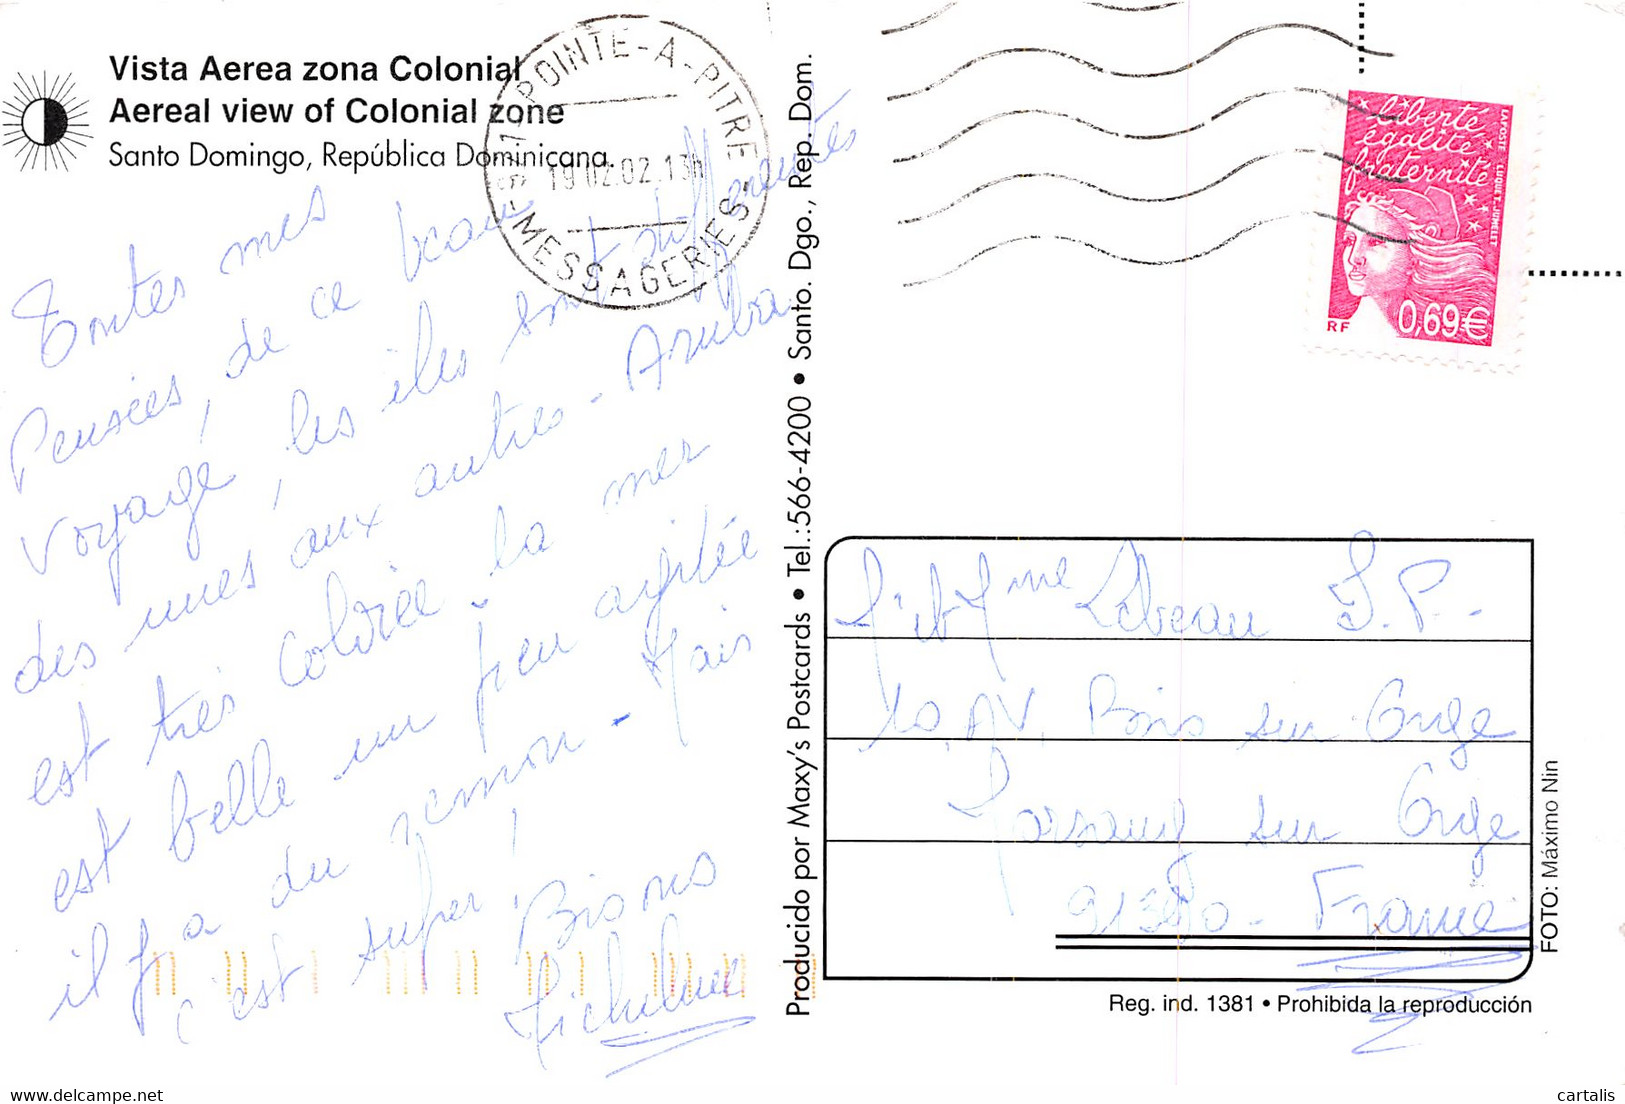 Vista Aerea zona Colonial
Aereal view of Colonial zone
Santo Domingo, República Dominicana.
POINTE-A-PITRE
19.02.02.13h
-MESSAGERIES-
liberté
égalité
fraternité
LA POSTE
LUQUET-JUMELET
RF
0,69€
Toutes mes
Pensées, de ce beau
voyage, les îles sont différentes
des unes aux autres - Aruba
est très colorée - la mer
est belle un peu agitée
il y a du - Mais
c'est super! Bisous
Micheline
Producido por Maxy's Postcards • Tel.:566-4200 • Santo. Dgo., Rep. Dom.
Mme Lebeau J.P.-
10, AV, Bois sur Orge
sur Orge
France
FOTO: Máximo Nin
Reg. ind. 1381 • Prohibida la reproducción
delcampe.net
cartalis